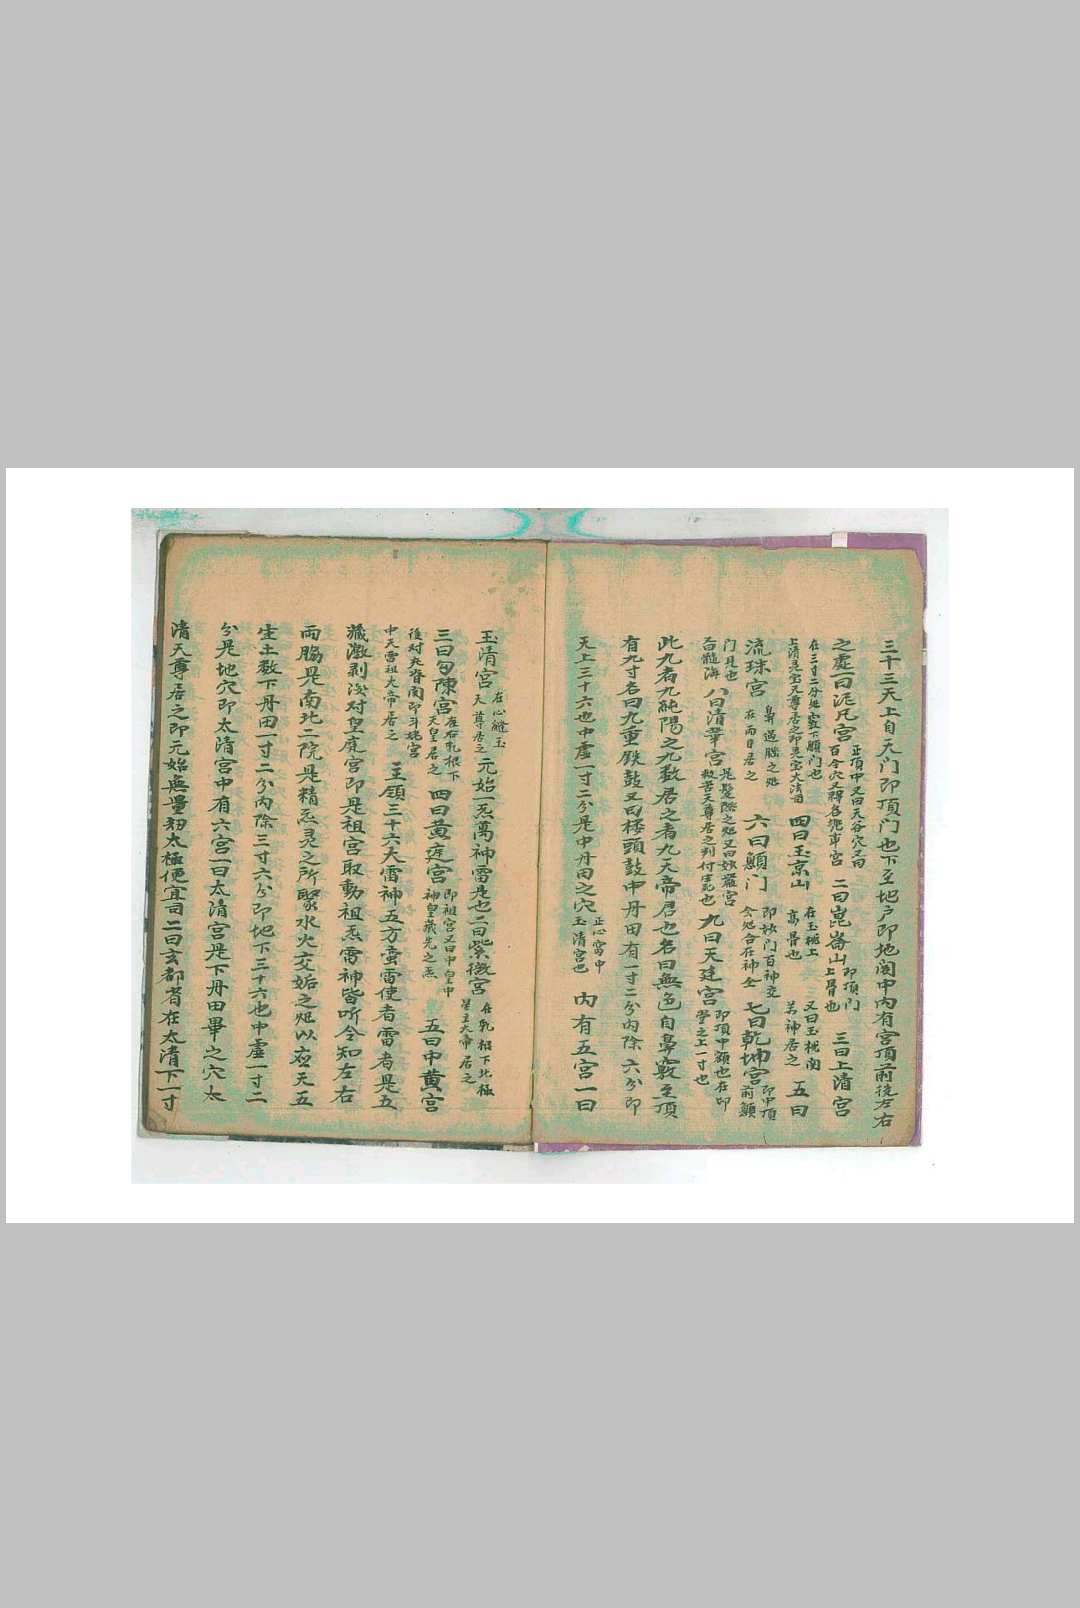 三十三天上自天门即頂门也下至地户即地阁中内有宫頂前後左右
之處一曰泥凡宫 正頂中又曰天谷穴又曰百令穴又 宫 二曰崑崙山 即頂门上骨也 三曰上清宫
在三寸二分処 下顖门也上清灵宝天尊居之即灵宝大法司 四曰玉京山 在玉枕上高骨也 又曰玉枕南 神居之 五曰
流珠宫 鼻通腦之処在两目居之 六曰顖门 即 门百神交会処合在神仝 七曰乾坤宫 即中頂前顖
门見也 百髓海 八曰清華宫 是髮際之処又曰妙嚴宫救苦天尊居之判付生死也 九曰天廷宫 即頂中额也在印堂之上一寸也
此九者九純陽之九数居之者九天帝君也名曰無色自鼻竅至頂
有九寸名曰九重鉄鼓又曰 頭鼓中丹田有一寸二分内除六分即
天上三十六也中虚一寸二分是中丹田之穴 正心窩中玉清宫也 内有五宫一曰
玉清宫 在心縫玉天尊居之 元始一炁萬神雷是也二曰紫微宫 在乾根下北極星主大帝居之
三曰勾陳宫 在右乳根下天皇居之 四曰黄庭宫 即祖宫又曰中皇中神皇 先之炁 五曰中黄宫
後对夹脊関即斗姥宫中天雷祖大帝居之 主領三十六大雷神五方蛮雷使者雷者是五
藏激剥 对皇庭宫即是祖宫取動祖炁雷神皆听令知左右
两腸是南北二院是精炁灵之所聚水火交姤之処以应天五
生土数下丹田一寸二分内除三寸六分即地下三十六也中虚一寸二
分是地穴即太清宫中有六宫一曰太清宫是下丹田畢之穴太
清天尊居之即元始無量劫太極便宜司二曰玄都省在太清下一寸